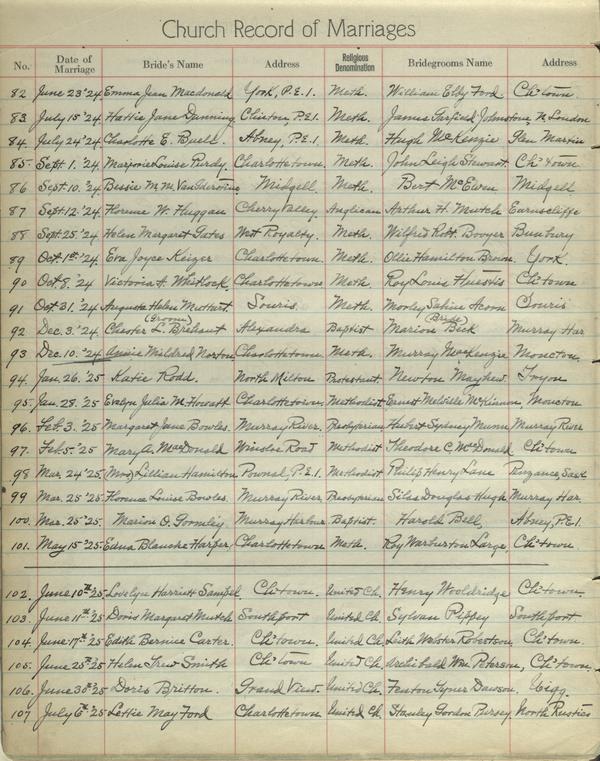 Church Record of Marriages
No. Date of Marriage Bride's Name Address Religious Denomination Bridegrooms Name Address
82 June 23 '24 Emma Jean Macdonald York, P.E.I. Meth. William Elby Ford Ch'town
83. July 15 '24 Hattie Jane Dunning Clinton, P.E.I. Meth. James Garfield Johnstone, N. London
84. July 24 '24 Charlotte E. Buell Abney, P.E.I Meth. Hugh McKenzie Glen Martin
85. Sept. 1. '24 Marjorie Louise Purdy Charlottetown Meth. John Leigh Stewart Ch'town
86 Sept. 10. '24 Bessie M. M. Midgell Meth. Bert McEwen Midgell
87 Sept. 12. '24 Florence W. Huggan Cherry Valley Anglican Arthur H. Mutch Earnscliffe
88 Sept. 25. '24 Helen Margaret Gates West Royalty. Meth. Wilfred Robt. Boovyer Bunbury
89 Oct. 1st '24 Eva Joyce Keizer Charlottetown Meth. Ollie Hamilton Brown York.
90 Oct 8. '24 Victoria H. Whitlock, Charlottetown Meth. Roy Louis Huestis Ch'town
91 Oct. 31. '24 Augusta Helen Muttart. Souris. Meth. Morley Sabine Acorn Souris
92 Dec. 3. '24 Chester L. Brehaut (Groom) Alexandra Baptist Marion Beck (Bride) Murray Har
93 Dec. 10. '24 Annie Mildred Norton Charlottetown Meth. Murray MacKenzie Moncton.
94. Jan. 26. '25 Katie Rodd. North Milton Protestant. Newton Mayhew
95. Jan. 28. '25 Evelyn Julia M. Howatt Charlottetown Methodist Ernest Melville McKinnon, Moncton
96. Feb. 3. '25 Margaret Jane Bowles. Murray River. Presbyterian Hubert Sydney Munn Murray River
97. Feb. 5. '25 Mary A. MacDonald Winsloe Road Methodist Theodore C. McDonald Ch'town
98 Mar. 24 '25 (Mrs) Lillian Hamilton Pownal, P.E.I. Methodist Philip Henry Lane Sask
99 Mar. 25 '25 Florence Louise Bowles. Murray River, Presbyterian Silas Douglas Hugh Murray Har.
100. Mar. 25. '25. Marion O. Gormley Murray Harbour Baptist. Harold Bell, Abney, P.E.I.
101. May 15 '25. Edna Blanche Harper, Charlottetown Meth. Roy Warburton Large, Ch'town.
102. June 10th '25 Lovelyn Harriett Sampel Ch'town. United Ch. Henry Wooldridge Ch'town.
103. June 11th '25 Doris Margaret Mutch Southport United Ch. Sylvan Pippy Southport.
104. June 17th '25 Edith Bernice Carter. Ch'town. United Ch. Leith Webster Robertson, Ch'town.
105. June 25th '25 Helen Trew Smith Ch'town United Ch. Archibald Wm. Peterson, Ch'town.
106. June 30th '25 Doris Britton. Grand View. United Ch. Fenton Tyner Dawson, Uigg.
107 July 6th '25 Lettie May Ford Charlottetown United Ch. Stanley Gordon Pursey. North Rustico